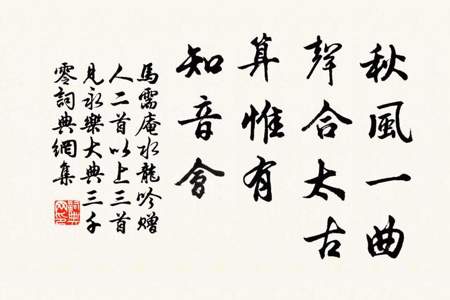 秋風一曲
聲合太古
算惟有
知音會
馬需庵水龍吟贈
人二首以上三首
見永樂大典三千
零詞典網集